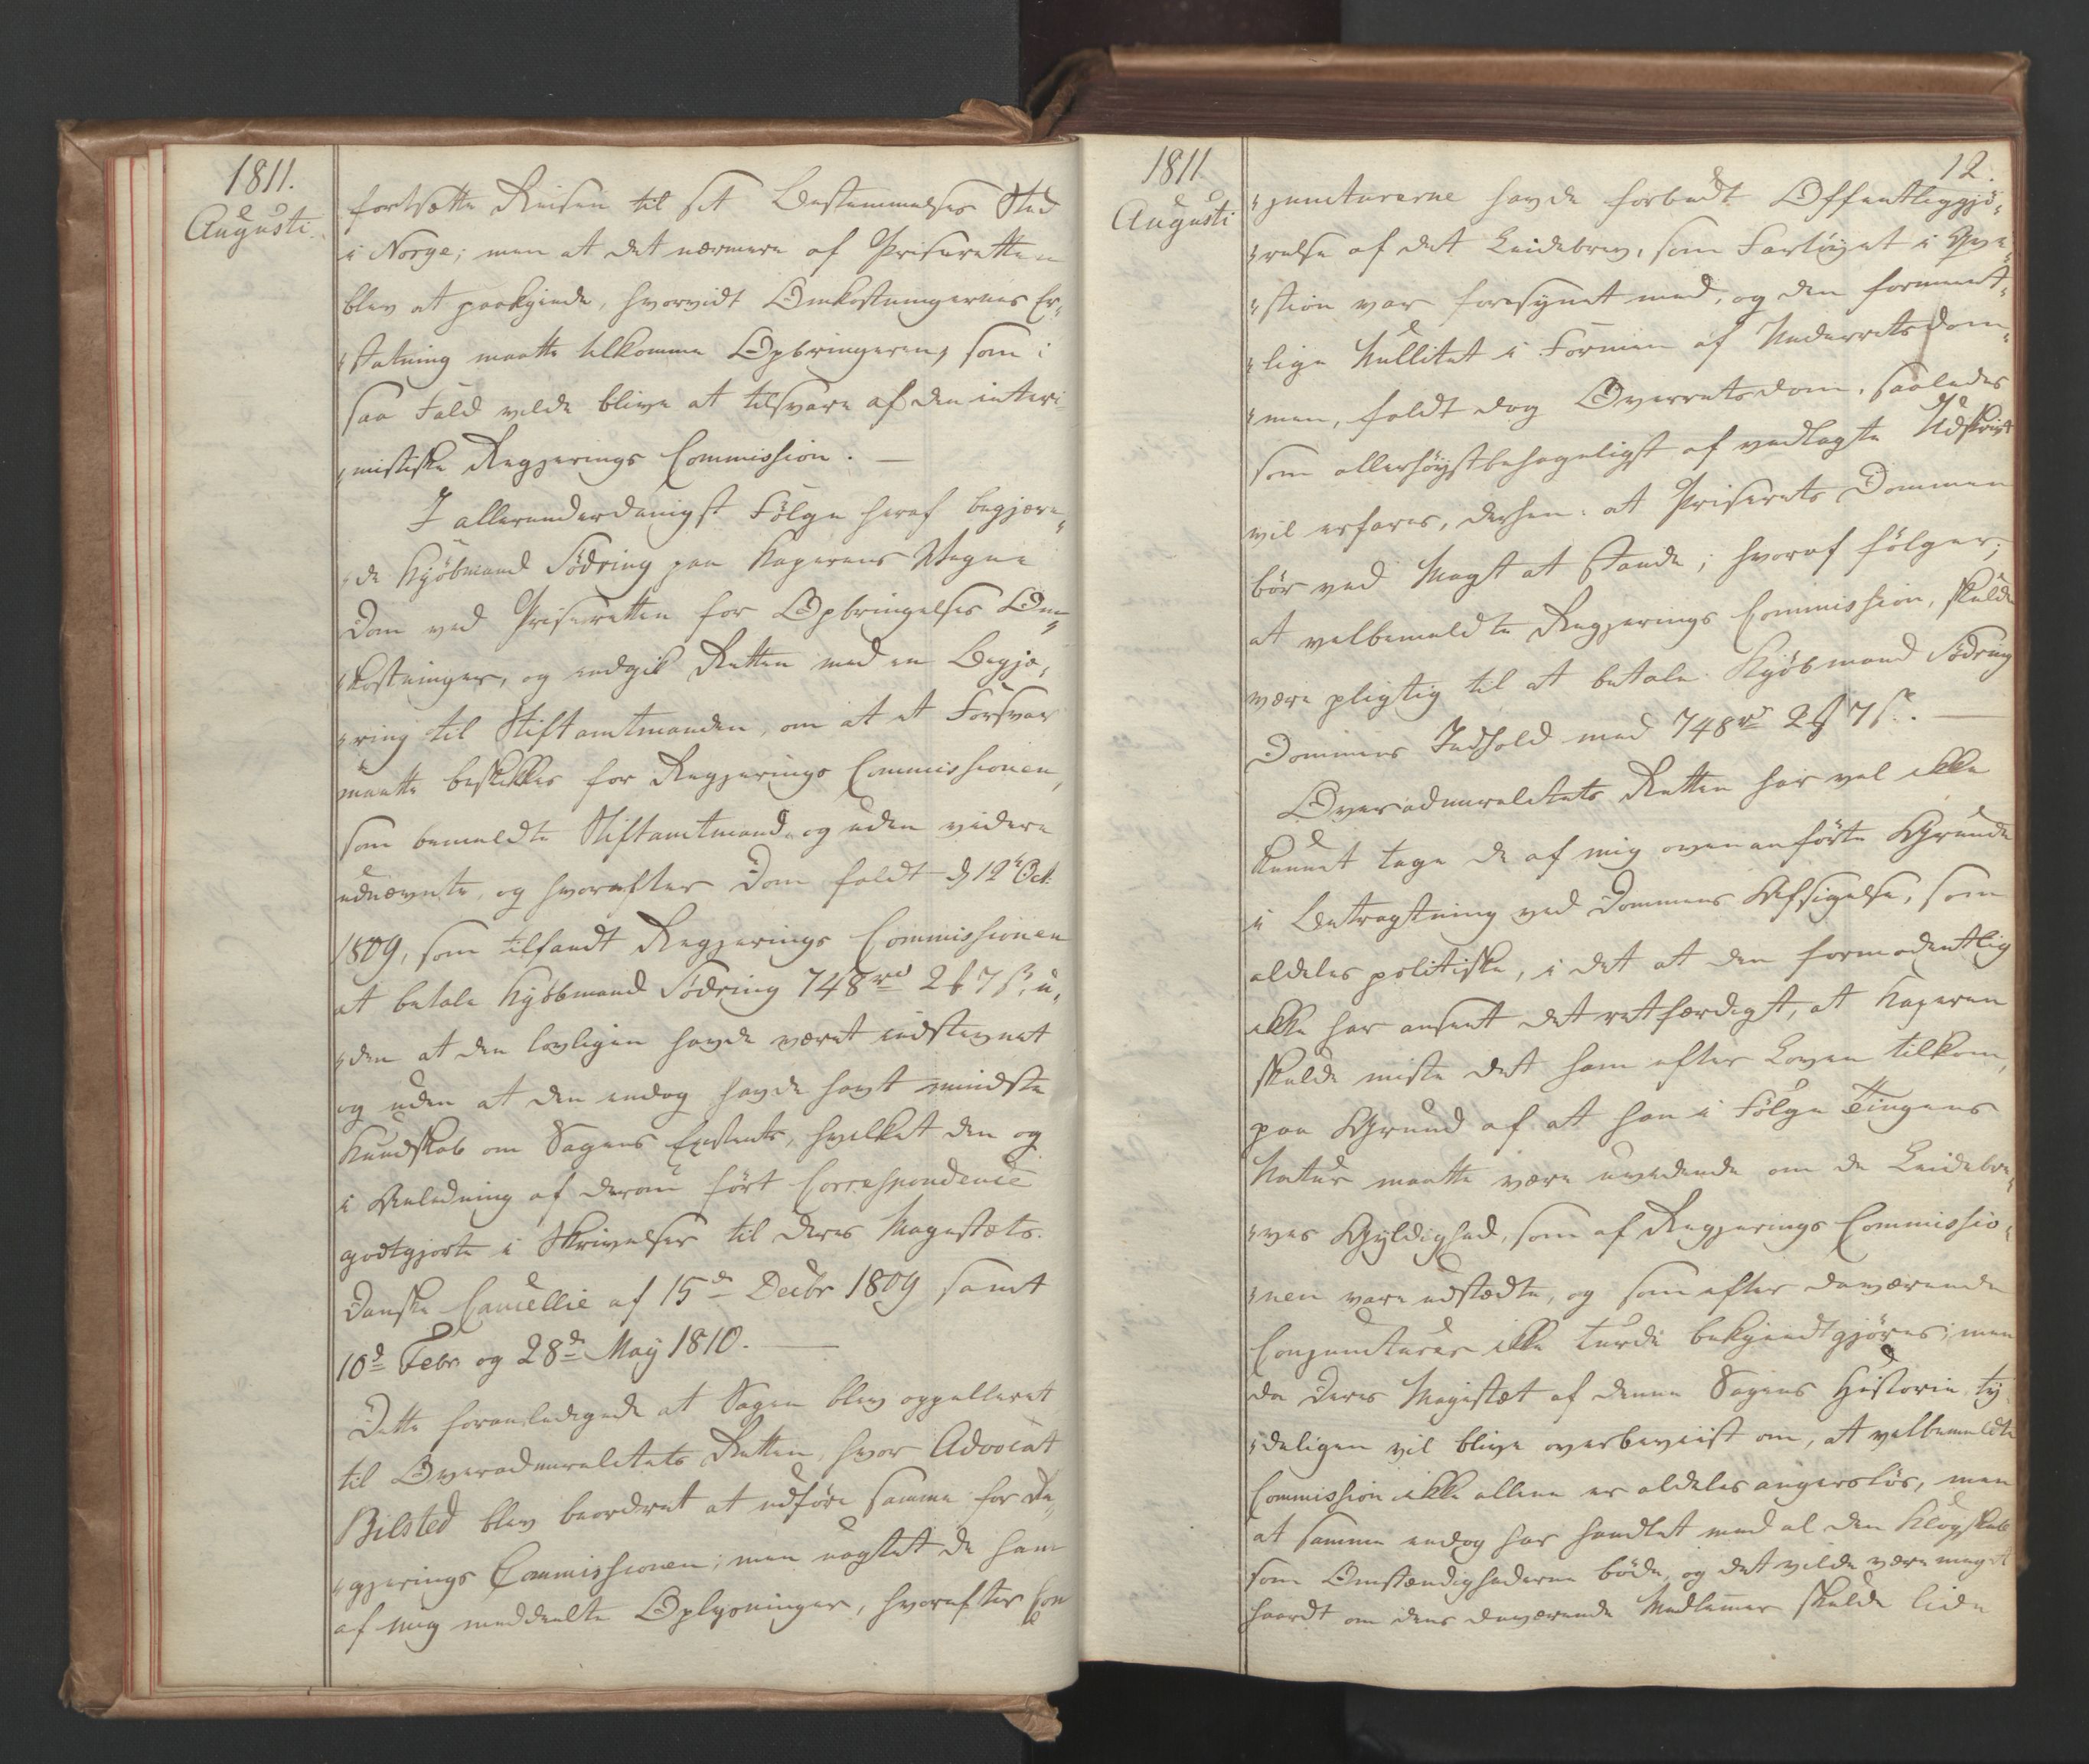 1811.
Augusti.
fortsætte Reisen til sit Bestemmelses Sted
i Norge; men at det nærmere af Priseretten
blev at paakjende, hvorvidt Omkostningernes Er-
statning maatte tilkomme Opbringeren, som i
saa Fald vilde blive at tilsvare af den interi-
mistiske Regjerings Commission. —
I allerunderdanigst Følge heraf begjære-
de Kjøbmand Södring paa Kaperens Vegne
Dom ved Priseretten for Opbringelses Om-
kostninger, og indgik Retten med en Begjæ-
ring til Stiftamtmanden, om at et Forsvar
maatte beskikkes for Regjerings Commissionen,
som bemeldte Stiftamtmand og uden videre
udnævnte, og hvorefter Dom faldt d 12t Oct.
1809, som tilfandt Regjerings Commissionen
at betale Kjøbmand Södring 748 rd 2 ₰ 7 ß, u-
den at den lovligen havde været indstevnet
og uden at den endog havde havt mindste
Kundskab om Sagens Existents, hvilket den og
i Anledning af derom ført Correspondence
godtgjorte i Skrivelser til Deres Majestæts
Danske Cancellie af 15de Decbr 1809 samt
10d Febr og 28d May 1810. —
Dette foranledigede at Sagen blev appelleret
til Overadmiralitets Retten, hvor Advocat
Bilsted blev beordret at udføre samme for Re-
gjerings Commissionen; men uagtet de ham
af mig meddeelte Oplysninger, hvorefter Con
1811
Augusti
12.
juncturerne havde forbudt Offentliggjö-
relse af det Leidebrev, som Fartøyet i Qve-
stion var forsynet med, og den forment-
lige Nullitet i Formen af Underrets Dom-
men, faldt dog Overretsdom, saaledes
som allerhöystbehageligst af vedlagte Udskrivt
vil erfares, derhen: at Priserets Dommen
bör ved Magt at stande; hvoraf følger,
at velbemeldte Regjerings Commission, skulde
være pligtig til at betale Kjöbmand Södring
Dommens Indhold med 748 rd 2 ₰ 7 ß. —
Overadmiralitets Retten har vel ikke
kunnet tage de af mig ovenanførte Grunde
i Betragtning ved Dommens Afsigelse, som
aldeles politiske, i det at den formodentlig
ikke har anseet det retfærdigt, at Kaperen
skulde miste det ham efter Loven tilkom,
paa Grund af at han i Følge Tingens
Natur maatte være uvidende om de Leidebre-
ves Gyldighed, som af Regjerings Commissio-
nen vare udstædte, og som efter daværende
Conjuncturer ikke turde bekjendtgjöres; men
da Deres Majestæt af denne Sagens Historie ty-
deligen vil blive overbeviist om, at velbemeldte
Commission ikke allene er aldeles angerslös, men
at samme endog har handlet med al den Klogskab
som Omstændighederne böde, og det vilde være meget
haardt om dens daværende Medlemmer skulde lide